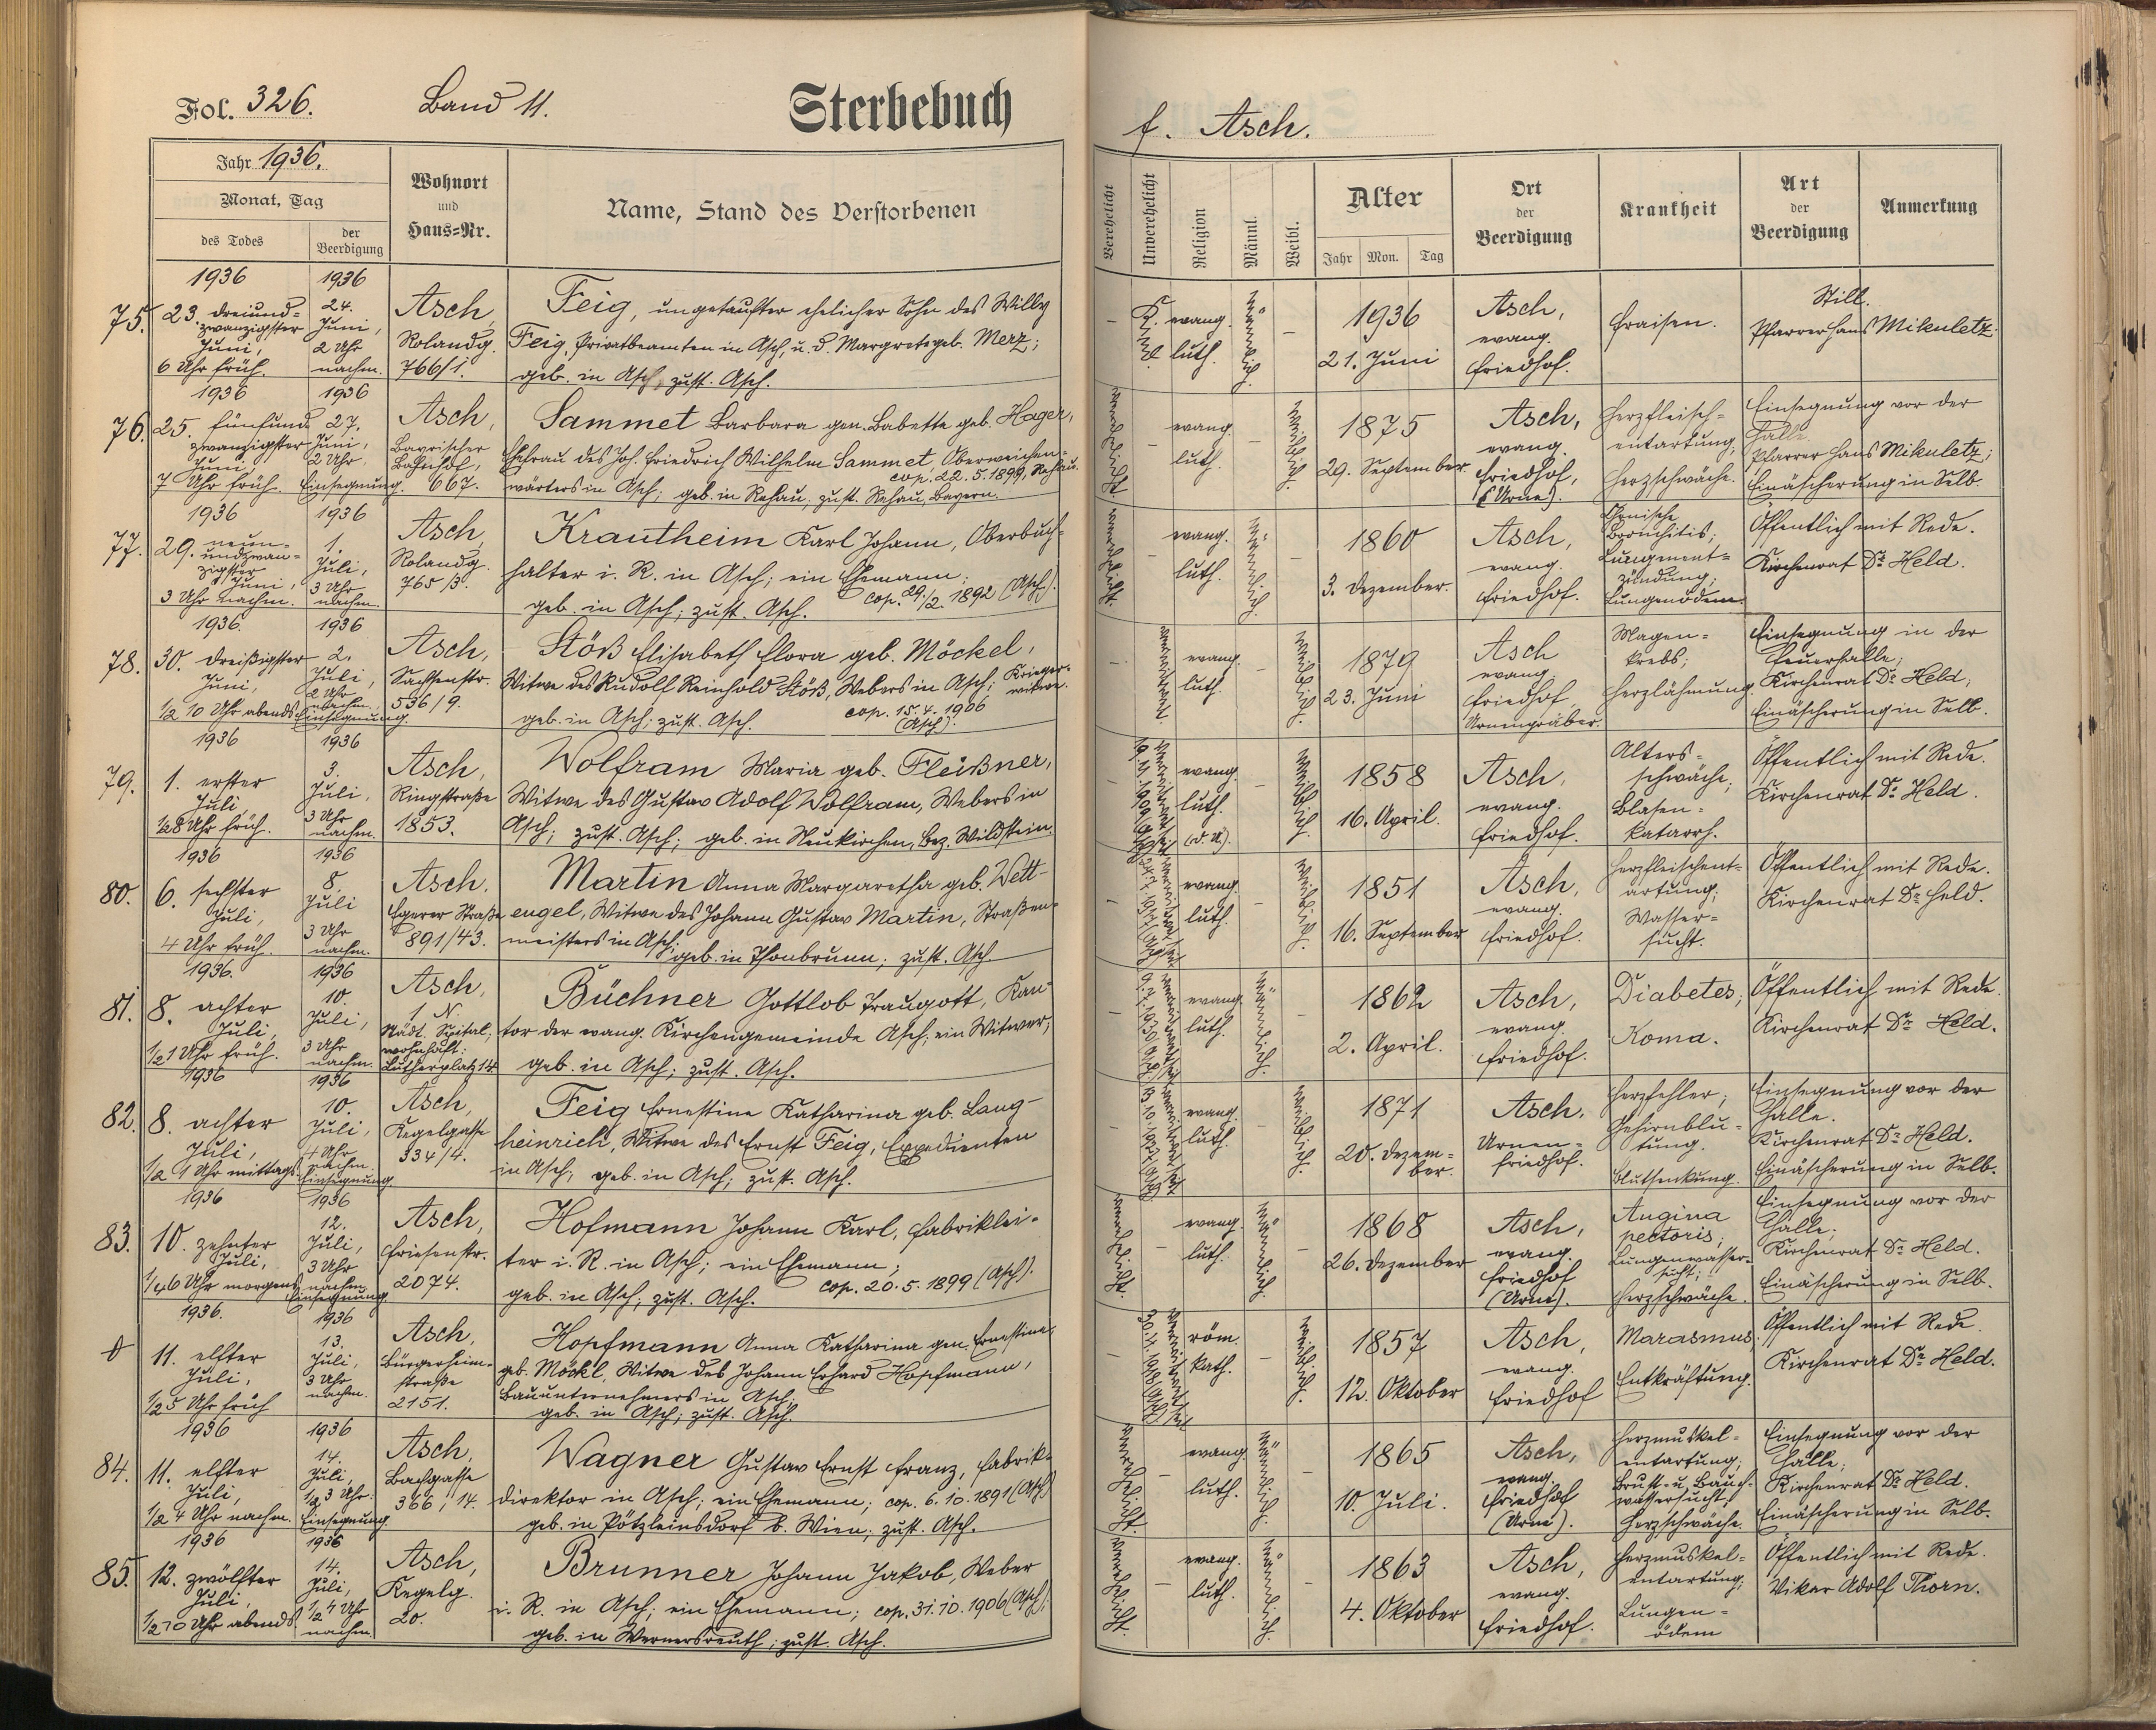 Fol. 326. Band 11. Sterbebuch
f. Asch.
Jahr 1936.
Monat, Tag
des Todes
der Beerdigung
Wohnort
und
Haus=Nr.
Name, Stand des Verstorbenen
Verehelicht
Unverehelicht
Religion
Männl.
Weibl.
Alter
Jahr Mon. Tag
Ort
der
Beerdigung
Krankheit
Art
der
Beerdigung
Anmerkung
75.
1936
23. dreiund=
zwanzigster
Juni,
6 Uhr früh.
1936
24.
Juni,
2 Uhr
nachm.
Asch,
Rolandg.
766/1.
Feig, ungetaufter ehelicher Sohn des Willy
Feig, Privatbeamten in Asch, u. d. Margrete geb. Merz;
geb. in Asch, zust. Asch.
evang.
luth.
männlich.
1936
21. Juni
Asch,
evang.
Friedhof.
Fraisen.
Still.
Pfarrer Hans Mikuletz.
76.
1936
25. fünfund
zwanzigster
Juni,
7 Uhr früh.
1936
27.
Juni,
2 Uhr
Einsegnung.
Asch,
Bayrischer
Bahnhof,
667.
Sammet Barbara gen. Babette geb. Hager,
Ehefrau des Joh. Friedrich Wilhelm Sammet, Oberweichen=
cop. 22. 5. 1899, Rehau.
wärters in Asch; geb. in Rehau, zust. Rehau, Bayern.
verehelicht.
evang.
luth.
weiblich.
1875
29. September
Asch,
evang.
Friedhof,
(Urne).
Herzfleisch=
entartung,
Herzschwäche.
Einsegnung vor der
Halle.
Pfarrer Hans Mikuletz;
Einäscherung in Selb.
77.
1936
29. neun=
undzwan=
zigster
Juni,
3 Uhr nachm.
1936
1.
Juli,
3 Uhr
nachm.
Asch,
Rolandg.
765/3.
Krautheim Karl Johann, Oberbuch=
halter i. R. in Asch; ein Ehemann;
cop. 29./2. 1892 (Asch).
geb. in Asch; zust. Asch.
verehelicht.
evang.
luth.
männlich.
1860
3. Dezember.
Asch,
evang.
Friedhof.
Chronische
Bronchitis;
Lungenent=
zündung;
Lungenödem.
Öffentlich mit Rede.
Kirchenrat Dr. Held.
78.
1936.
30. dreißigster
Juni,
1/2 10 Uhr abends
1936
2.
Juli,
2 Uhr
nachm.
Einsegnung.
Asch,
Sachsenstr.
536/9.
Stöß Elisabeth Flora geb. Möckel,
Witwe des Rudolf Reinhold Stöß, Webers in Asch; Krieger=
witwe.
cop. 15. 4. 1906
(Asch).
geb. in Asch; zust. Asch.
verwitwet.
evang.
luth.
weiblich.
1879
23. Juni
Asch
evang.
Friedhof
Urnengräber.
Magen=
krebs;
Herzlähmung.
Einsegnung in der
Feuerhalle;
Kirchenrat Dr. Held;
Einäscherung in Selb.
79.
1936
1. erster
Juli
1/2 8 Uhr früh.
1936
3.
Juli,
3 Uhr
nachm.
Asch,
Ringstraße
1853.
Wolfram Maria geb. Fleißner,
Witwe des Gustav Adolf Wolfram, Webers in
Asch; zust. Asch; geb. in Neukirchen, Bez. Wildstein.
evang.
luth.
weiblich.
1858
16. April.
Asch,
evang.
Friedhof.
Alters=
schwäche;
Blasen=
katarrh.
Öffentlich mit Rede.
Kirchenrat Dr. Held.
80.
1936
6. sechster
Juli,
4 Uhr früh.
1936
8.
Juli
3 Uhr
nachm.
Asch.
Egerer Straße
891/43.
Martin Anna Margaretha geb. Wett=
engel, Witwe des Johann Gustav Martin, Straßen=
meisters in Asch; geb. in Thonbrunn; zust. Asch.
evang.
luth.
weiblich.
1851
16. September
Asch,
evang.
Friedhof.
Herzfleischent=
artung;
Wasser=
sucht.
Öffentlich mit Rede.
Kirchenrat Dr. Held.
81.
1936.
8. achter
Juli,
1/2 1 Uhr früh.
1936
10.
Juli,
3 Uhr
nachm.
Asch,
1. N.
Städt. Spital,
wohnhaft:
Lutherplatz 14
Büchner Gottlob Traugott, Kan=
tor der evang. Kirchengemeinde Asch; ein Witwer;
geb. in Asch; zust. Asch.
evang.
luth.
männlich.
1862
2. April.
Asch,
evang.
Friedhof.
Diabetes;
Koma.
Öffentlich mit Rede.
Kirchenrat Dr. Held.
82.
1936
8. achter
Juli,
1/2 1 Uhr mittags.
1936
10.
Juli,
4 Uhr
nachm.
Einsegnung.
Asch,
Kegelgasse
334/4.
Feig Ernestine Katharina geb. Lang=
heinrich, Witwe des Ernst Feig, Expedienten
in Asch, geb. in Asch; zust. Asch.
evang.
luth.
weiblich.
1871
20. Dezem=
ber.
Asch,
Urnen=
friedhof.
Herzfehler;
Gehirnblu=
tung.
Blutsenkung.
Einsegnung vor der
Halle.
Kirchenrat Dr. Held.
Einäscherung in Selb.
83.
1936
10. zehnter
Juli,
1/4 6 Uhr morgens
1936
12.
Juli,
3 Uhr
nachm.
Einsegnung.
Asch,
Friesenstr.
2074.
Hofmann Johann Karl, Fabriklei=
ter i. R. in Asch; ein Ehemann;
cop. 20. 5. 1899 (Asch).
geb. in Asch; zust. Asch.
verehelicht.
evang.
luth.
männlich.
1868
26. Dezember
Asch,
evang.
Friedhof
(Urne).
Angina
pectoris;
Lungenwasser=
sucht;
Herzschwäche.
Einsegnung vor der
Halle;
Kirchenrat Dr. Held.
Einäscherung in Selb.
1936.
11. elfter
Juli,
1/2 5 Uhr früh
1936
13.
Juli,
3 Uhr
nachm.
Asch,
Bürgerheim=
straße
2151.
Hopfmann Anna Katharina gen. Ernestine
geb. Möckl, Witwe des Johann Erhard Hopfmann,
Bauunternehmers in Asch;
geb. in Asch; zust. Asch.
röm.
kath.
weiblich.
1857
12. Oktober
Asch,
evang.
Friedhof
Marasmus,
Entkräftung.
Öffentlich mit Rede.
Kirchenrat Dr. Held.
84.
1936
11. elfter
Juli,
1/2 4 Uhr nachm.
1936
14.
Juli,
1/2 3 Uhr.
Einsegnung.
Asch,
Bachgasse
366/14.
Wagner Gustav Ernst Franz, Fabrik=
direktor in Asch; ein Ehemann; cop. 6. 10. 1891 (Asch)
geb. in Pötzleinsdorf b. Wien; zust. Asch.
verehelicht.
evang.
luth.
männlich.
1865
10. Juli.
Asch,
evang.
Friedhof
(Urne).
Herzmuskel=
entartung;
Brust- u. Bauch=
wassersucht;
Herzschwäche.
Einsegnung vor der
Halle;
Kirchenrat Dr. Held.
Einäscherung in Selb.
85.
1936
12. zwölfter
Juli,
1/2 10 Uhr abends.
1936
14.
Juli,
1/2 4 Uhr
nachm.
Asch,
Kegelg.
20.
Brunner Johann Jakob, Weber
i. R. in Asch; ein Ehemann; cop. 31. 10. 1906 (Asch);
geb. in Wernersreuth; zust. Asch.
verehelicht.
evang.
luth.
männlich.
1863
4. Oktober
Asch,
evang.
Friedhof.
Herzmuskel=
entartung;
Lungen=
ödem
Öffentlich mit Rede.
Vikar Adolf Thorn.